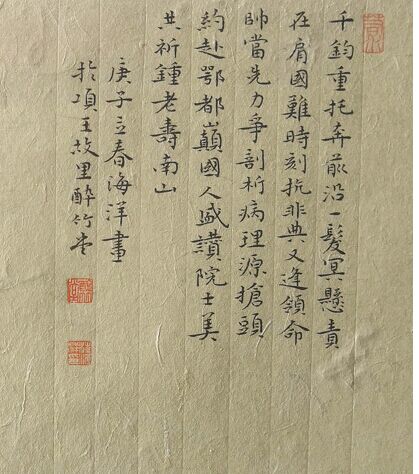 千鈞重托奔前沿一髮冥懸責
在肩國難時刻抗非典又逢領命
帥當先力爭剖析病理源搶頭
約赴鄂都巔國人盛讚院士美
共祈鍾老壽南山
庚子立春海洋畫
於項王故里醉竹堂